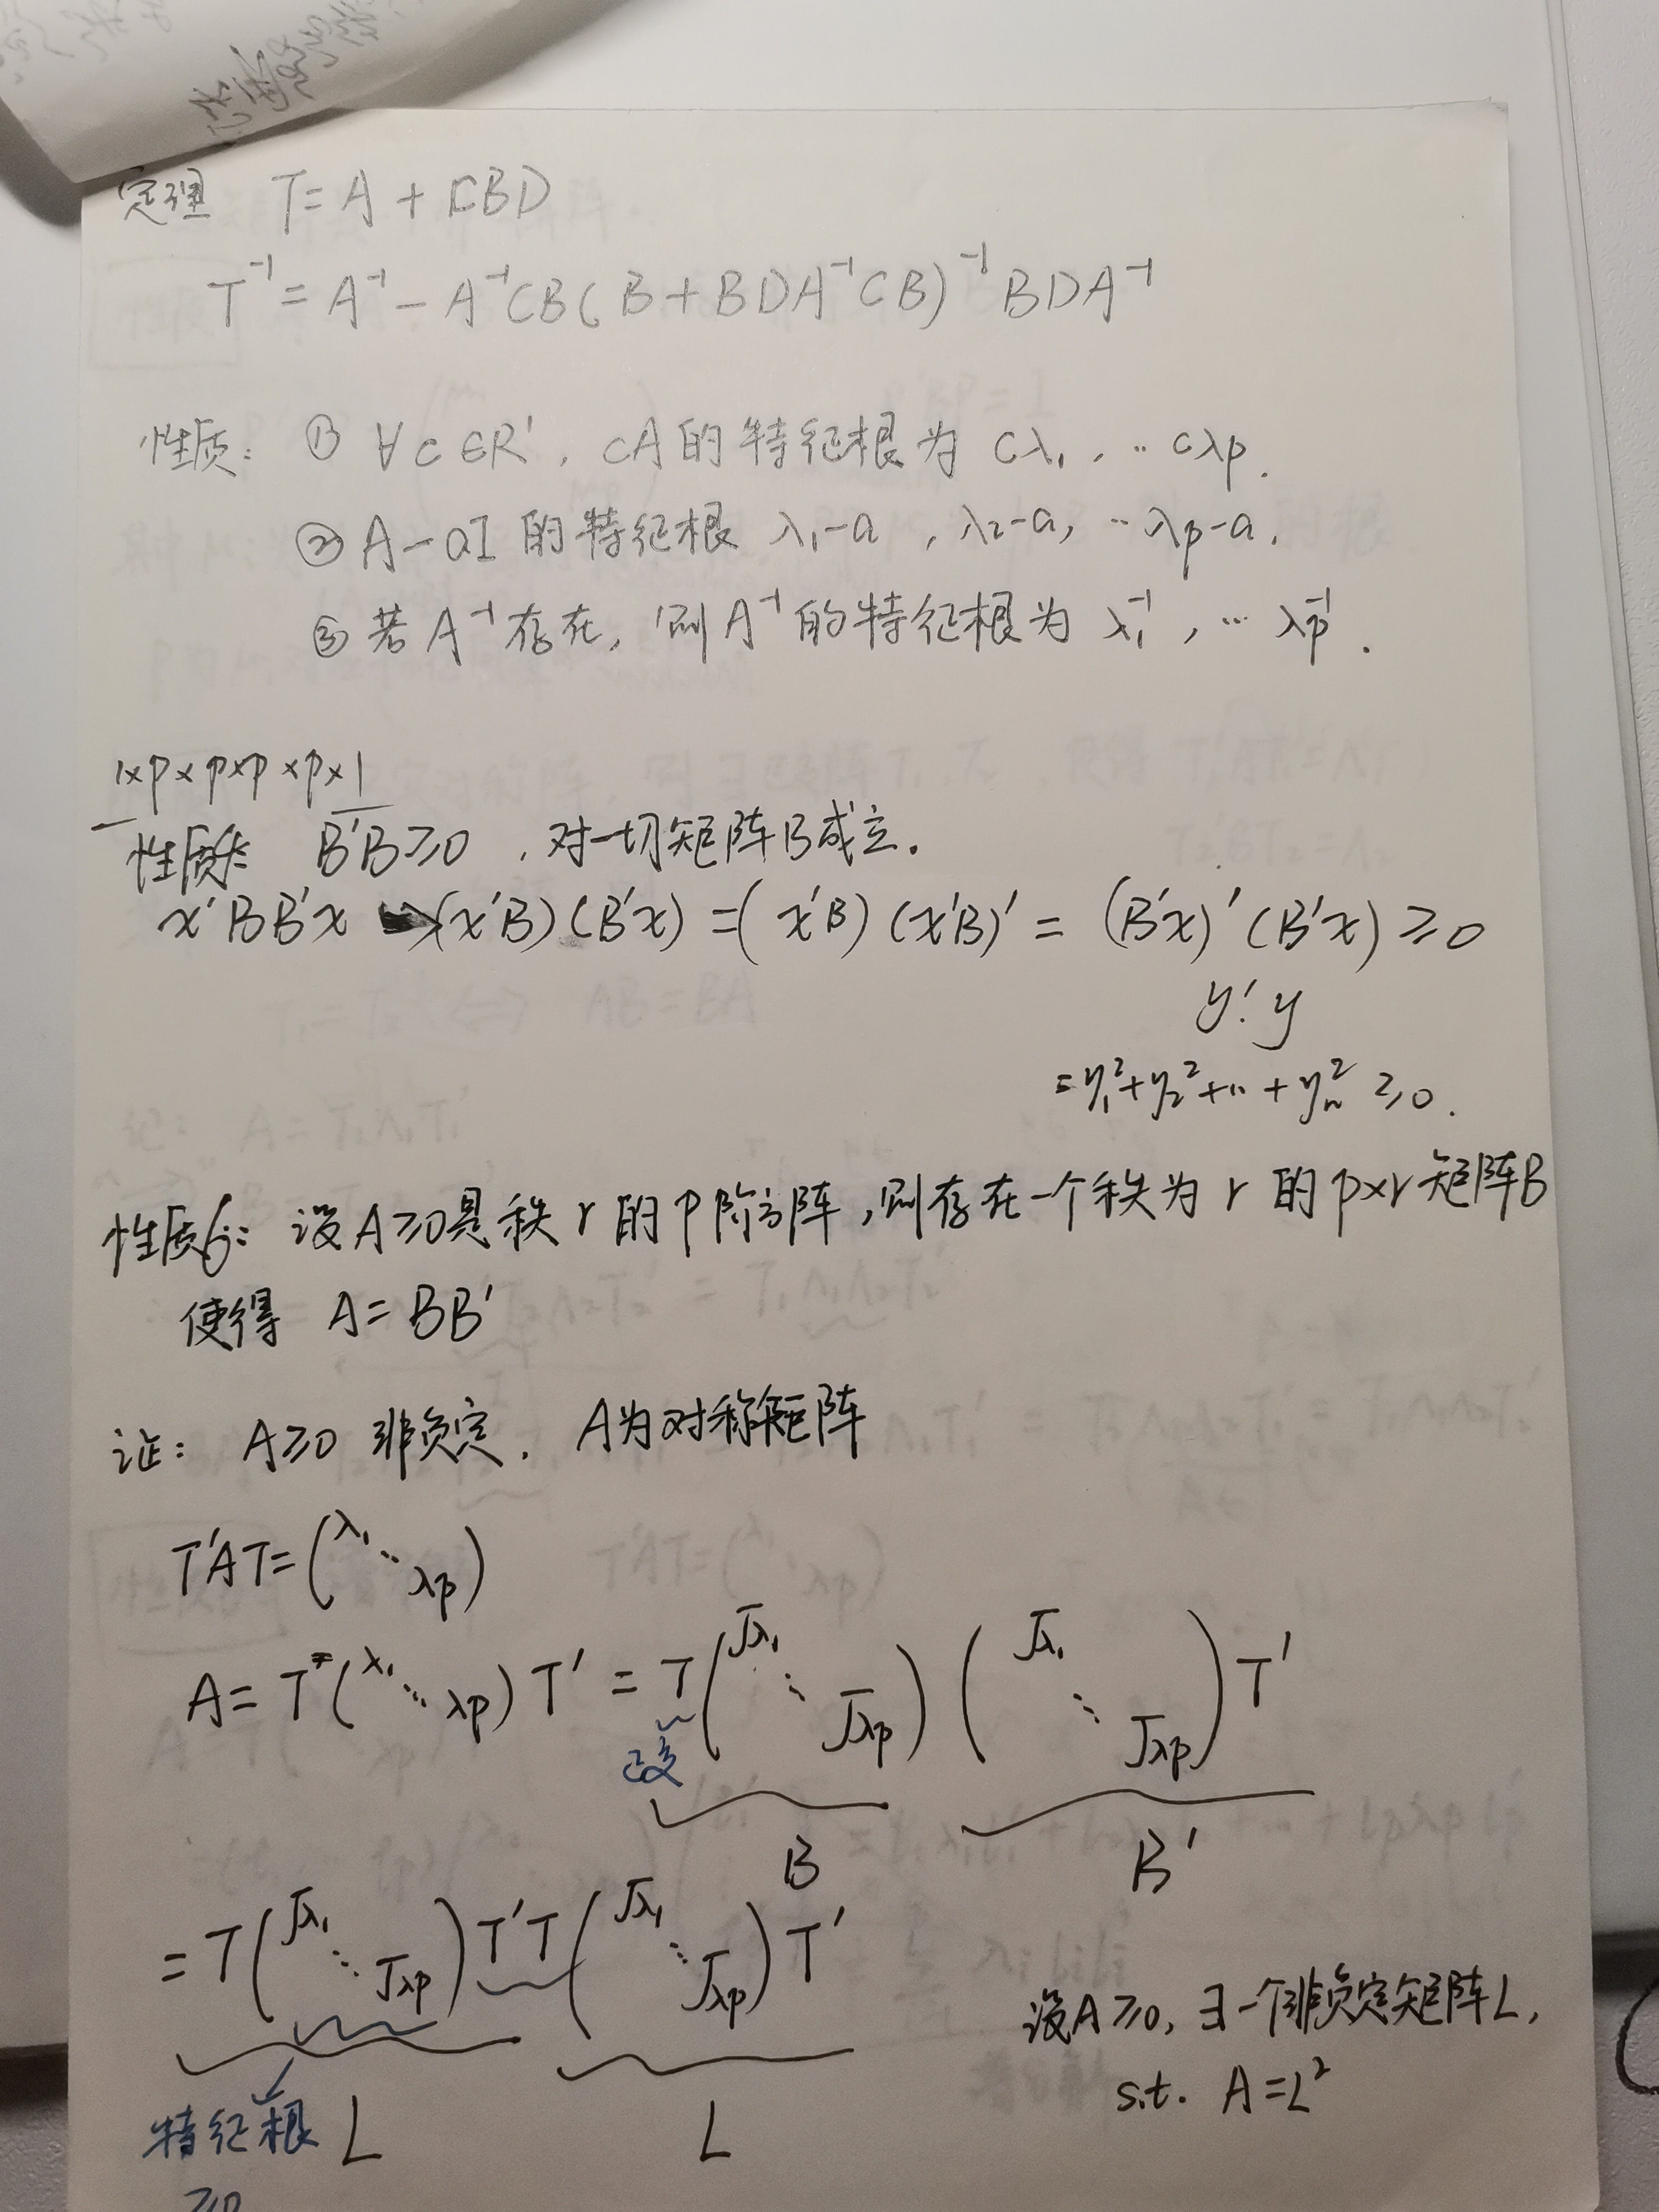 定理 T = A + CBD
T⁻¹ = A⁻¹ - A⁻¹CB(B + BDA⁻¹CB)⁻¹BDA⁻¹
性质: ① ∀c∈R', cA的特征根为 cλ₁, … cλp.
② A-aI 的特征根 λ₁-a, λ₂-a, … λp-a.
③ 若A⁻¹存在, 则A⁻¹的特征根为 λ₁⁻¹, … λp⁻¹.
1×p × p×p × p×1
性质: B'B≥0, 对一切矩阵B成立.
x'BB'x (x'B)(B'x) = (x'B)(x'B)' = (B'x)'(B'x) ≥0
y'·y
= y₁² + y₂² + … + yₙ² ≥0.
性质6: 设A≥0是秩r的p阶方阵, 则存在一个秩为r的p×r矩阵B
使得 A=BB'
证: A≥0 非负定. A为对称矩阵
T'AT = (λ₁ ⋱ λp)
A = T(λ₁ ⋱ λp)T' = T(√λ₁ ⋱ √λp)(√λ₁ ⋱ √λp)T'
正交
B B'
= T(√λ₁ ⋱ √λp)T'T(√λ₁ ⋱ √λp)T'
设A≥0, ∃一个非负定矩阵L,
s.t. A=L²
特征根 L L
≥0